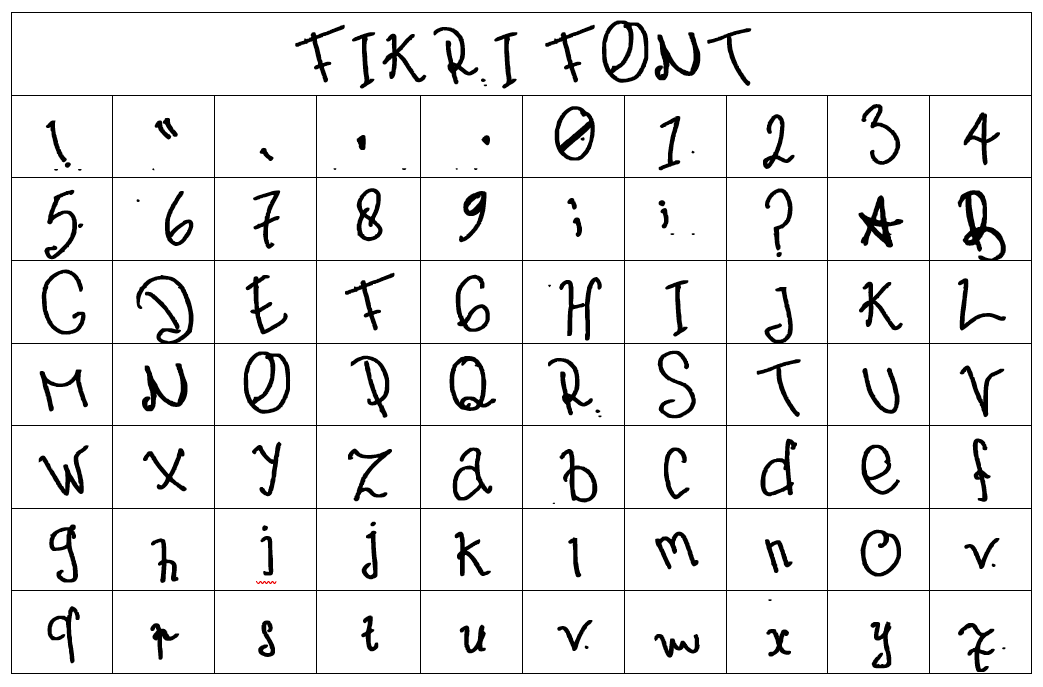 FIKRI FONT
! " , . . 0 1 2 3 4
5 6 7 8 9 ; ; ? A B
C D E F G H I J K L
M N O P Q R S T U V
W X Y Z a b c d e f
g h i j k l m n o v
q r s t u v w x y z